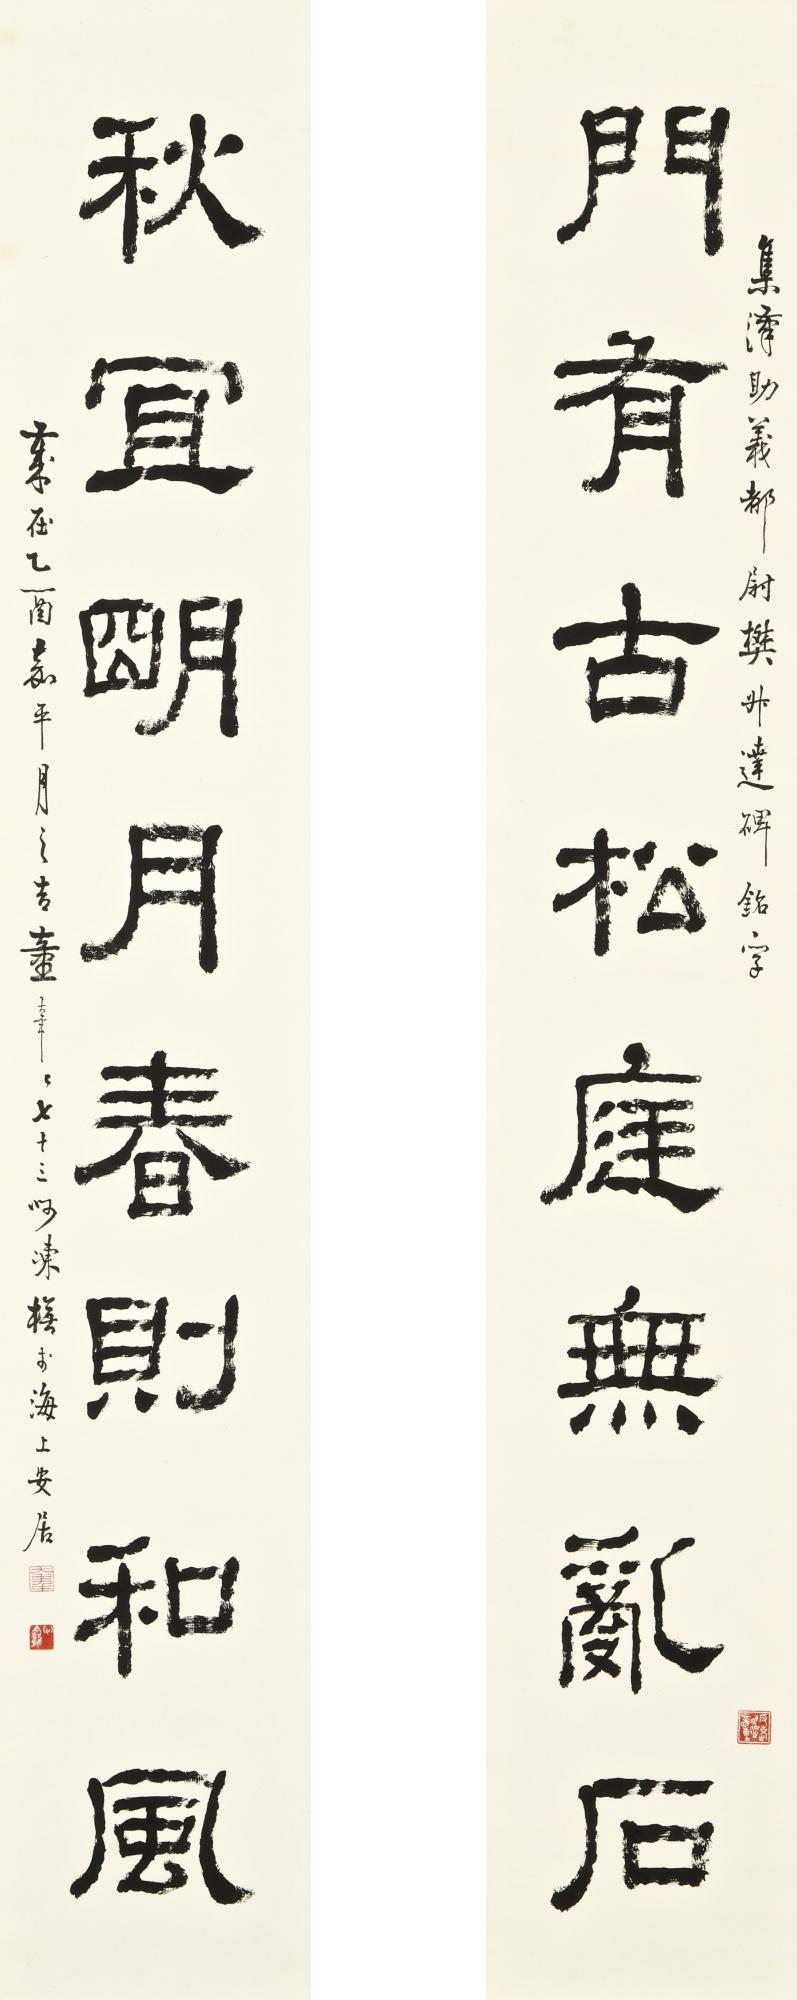 集漢助義都尉樊毋達碑銘字
門有古松庭無亂石
秋宜明月春則和風
歲在乙酉嘉平月之吉童年七十三呵凍橅於海上安居